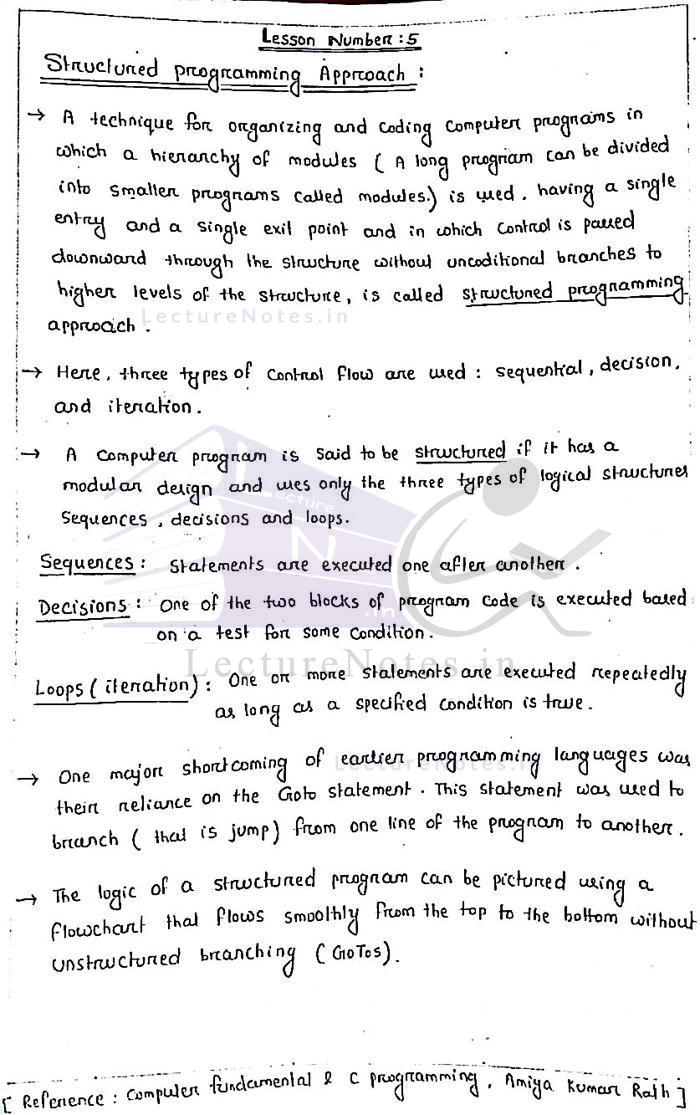 Lesson Number : 5
Structured programming Approach :
→ A technique for organizing and coding computer programs in
which a hierarchy of modules ( A long program can be divided
into smaller programs called modules.) is used. having a single
entry and a single exit point and in which control is passed
downward through the structure without uncoditional branches to
higher levels of the structure, is called structured programming
approach .
LectureNotes.in
→ Here, three types of control flow are used : sequential, decision,
and iteration.
→ A computer program is said to be structured if it has a
modular design and uses only the three types of logical structures
Sequences, decisions and loops.
Lecture
N
.in
Sequences : Statements are executed one after another .
Decisions : One of the two blocks of program code is executed based
on a test for some condition.
LectureNotes.in
Loops ( iteration) : One or more statements are executed repeatedly
as long as a specified condition is true.
→ One major shortcoming of earlier programming languages was
LectureNotes.in
their reliance on the Goto statement. This statement was used to
branch ( that is jump) from one line of the program to another.
→ The logic of a structured program can be pictured using a
flowchart that flows smoothly from the top to the bottom without
unstructured branching (GoTos).
[ Reference : Computer fundamental & C programming, Amiya Kumar Rath ]